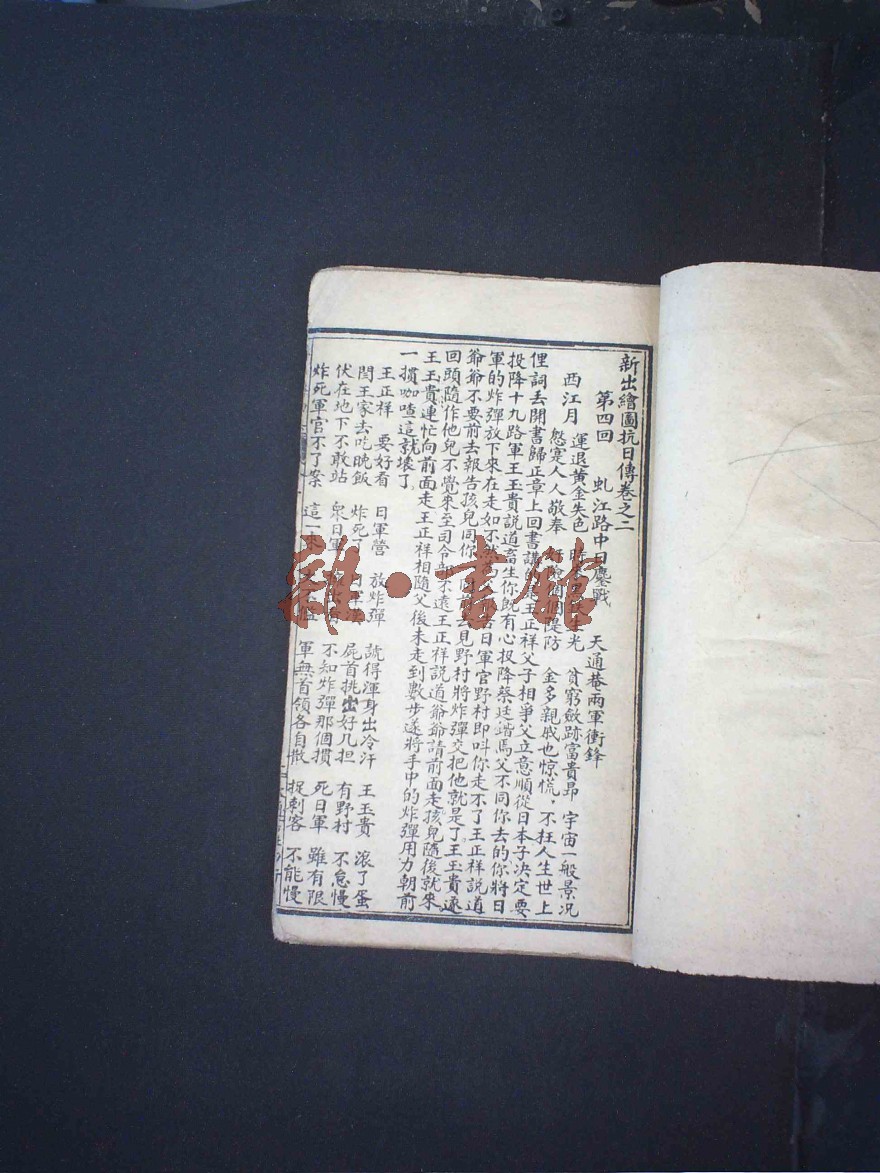 新出繪圖抗日傳卷之二
第四回 虬江路中日鏖戰 天通巷兩軍衝鋒
西江月 運退黃金失色 時 生光 貧窮斂跡富貴昂 宇宙一般景况
怒寔人人敬奉 個個隄防 金多親戚也惊慌 不枉人生世上
俚詞丟開書歸正章上回書講 王正祥父子相爭父立意順從日本子决定要
投降十九路軍王玉貴説道畜生你既有心投降蔡廷鍇為父不同你去的你將日
軍的炸彈放下來在走如不然為 告日軍官野村即叫你走不了王正祥説道
爺爺不要前去報告孩兒同你 去見野村將炸彈交把他就是了王玉貴遂
回頭隨作他兒不覺來至司令部不遠王正祥説道爺爺請前面走孩兒隨後就來
王玉貴連忙向前面走王正祥相隨父後未走到數步遂將手中的炸彈用力朝前
一摜咖喳這就壞了
王正祥 要好看 日軍營 放炸彈 諕得渾身出冷汗 王玉貴 滾了蛋
閻王家去吃晚飯 炸死了 屍首挑出好几担 有野村 不怠慢
伏在地下不敢站 衆日軍 不知炸彈那個摜 死日軍 雖有限
炸死軍官不了案 這一來 軍無首領各自散 捉刺客 不能慢
雜·書館